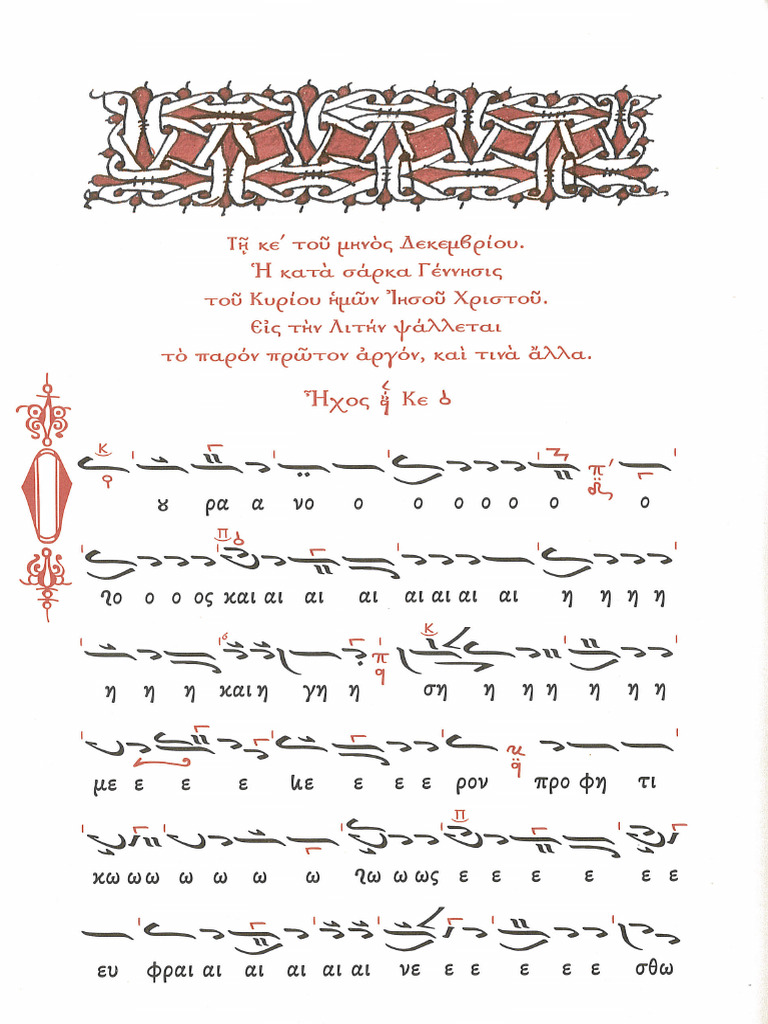 Τῇ κε' τοῦ μηνὸς Δεκεμβρίου.
Ἡ κατὰ σάρκα Γέννησις
τοῦ Κυρίου ἡμῶν Ἰησοῦ Χριστοῦ.
Εἰς τὴν Λιτήν ψάλλεται
τὸ παρόν πρῶτον ἀργόν, καὶ τινὰ ἄλλα.
Ἦχος Κε
Ο
ȣ ρα α νο ο ο ο ο ο ο ο
λο ο ο ος και αι αι αι αι αι αι αι η η η η
η η η και η γη η ση η η η η η η η
με ε ε ε κε ε ε ε ρον προ φη τι
κω ω ω ω ω ω ω λω ω ως ε ε ε ε ε ε
ευ φραι αι αι αι αι αι νε ε ε ε ε ε σθω